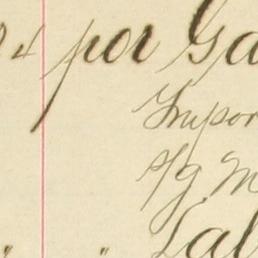 4 por Ga
Impor
s/g M
Lal
" "